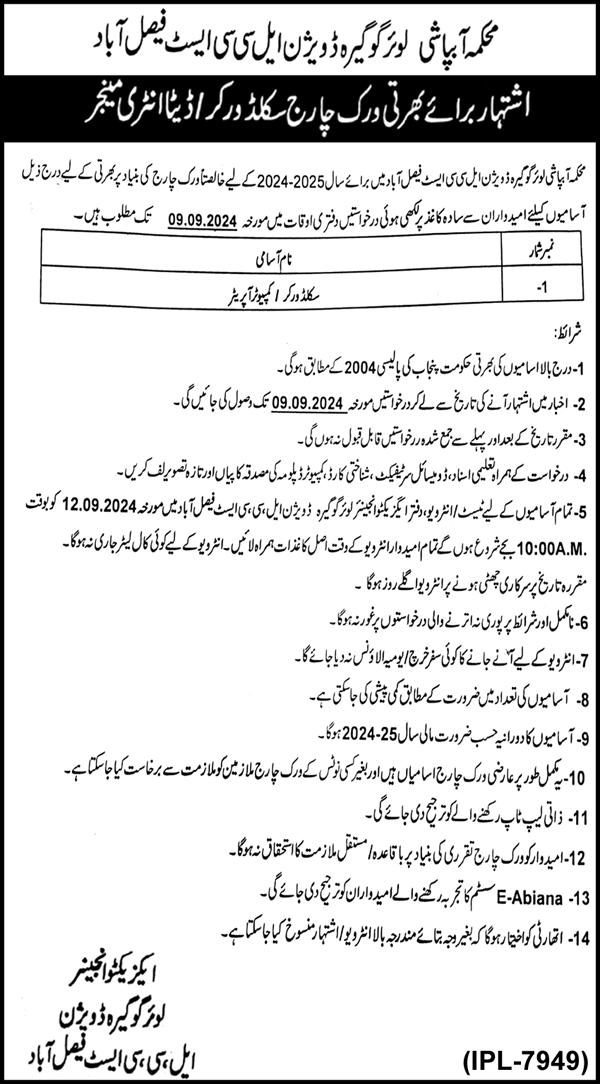 محکمہ آبپاشی لوئر گوگیرہ ڈویژن ایل سی سی ایسٹ فیصل آباد
اشتہار برائے بھرتی ورک چارج سکلڈ ورکر/ڈیٹا انٹری مینجر
محکمہ آبپاشی لوئر گوگیرہ ڈویژن ایل سی سی ایسٹ فیصل آباد میں برائے سال 2025-2024 کے لیے خالصتاً ورک چارج کی بنیاد پر بھرتی کے لیے درج ذیل
آسامیوں کیلئے امیدواران سے سادہ کاغذ پر لکھی ہوئی درخواستیں دفتری اوقات میں مورخہ 09.09.2024 تک مطلوب ہیں۔
نمبر شمار نام آسامی
1- سکلڈ ورکر/کمپیوٹر آپریٹر
شرائط:
1- درج بالا اسامیوں کی بھرتی حکومت پنجاب کی پالیسی 2004 کے مطابق ہوگی۔
2- اخبار میں اشتہار آنے کی تاریخ سے لے کر درخواستیں مورخہ 09.09.2024 تک وصول کی جائیں گی۔
3- مقررہ تاریخ کے بعد اور پہلے سے جمع شدہ درخواستیں قابل قبول نہ ہوں گی۔
4- درخواست کے ہمراہ تعلیمی اسناد، ڈومیسائل سرٹیفکیٹ، شناختی کارڈ، کمپیوٹر ڈپلومہ کی مصدقہ کاپیاں اور تازہ تصویر لف کریں۔
5- تمام آسامیوں کے لیے ٹیسٹ/انٹرویو، دفتر ایگزیکٹو انجینئر لوئر گوگیرہ ڈویژن ایل۔سی۔سی ایسٹ فیصل آباد میں مورخہ 12.09.2024 کو بوقت
10:00A.M. بجے شروع ہوں گے تمام امیدوار انٹرویو کے وقت اصل کاغذات ہمراہ لائیں۔ انٹرویو کے لیے کوئی کال لیٹر جاری نہ ہوگا۔
مقررہ تاریخ پر سرکاری چھٹی ہونے پر انٹرویو اگلے روز ہوگا۔
6- نامکمل اور شرائط پر پوری نہ اترنے والی درخواستوں پر غور نہ ہوگا۔
7- انٹرویو کے لیے آنے جانے کا کوئی سفر خرچ/یومیہ الاؤنس نہ دیا جائے گا۔
8- آسامیوں کی تعداد میں ضرورت کے مطابق کمی بیشی کی جاسکتی ہے۔
9- آسامیوں کا دورانیہ حسب ضرورت مالی سال 25-2024 ہوگا۔
10- یہ مکمل طور پر عارضی ورک چارج اسامیاں ہیں اور بغیر کسی نوٹس کے ورک چارج ملازمین کو ملازمت سے برخاست کیا جاسکتا ہے۔
11- ذاتی لیپ ٹاپ رکھنے والے کو ترجیح دی جائے گی۔
12- امیدوار کو ورک چارج تقرری کی بنیاد پر باقاعدہ/مستقل ملازمت کا استحقاق نہ ہوگا۔
13- E-Abiana سسٹم کا تجربہ رکھنے والے امیدواران کو ترجیح دی جائے گی۔
14- اتھارٹی کو اختیار ہوگا کہ بغیر وجہ بتائے مندرجہ بالا انٹرویو/اشتہار منسوخ کیا جاسکتا ہے۔
ایگزیکٹو انجینئر
لوئر گوگیرہ ڈویژن
ایل سی سی ایسٹ فیصل آباد
(IPL-7949)